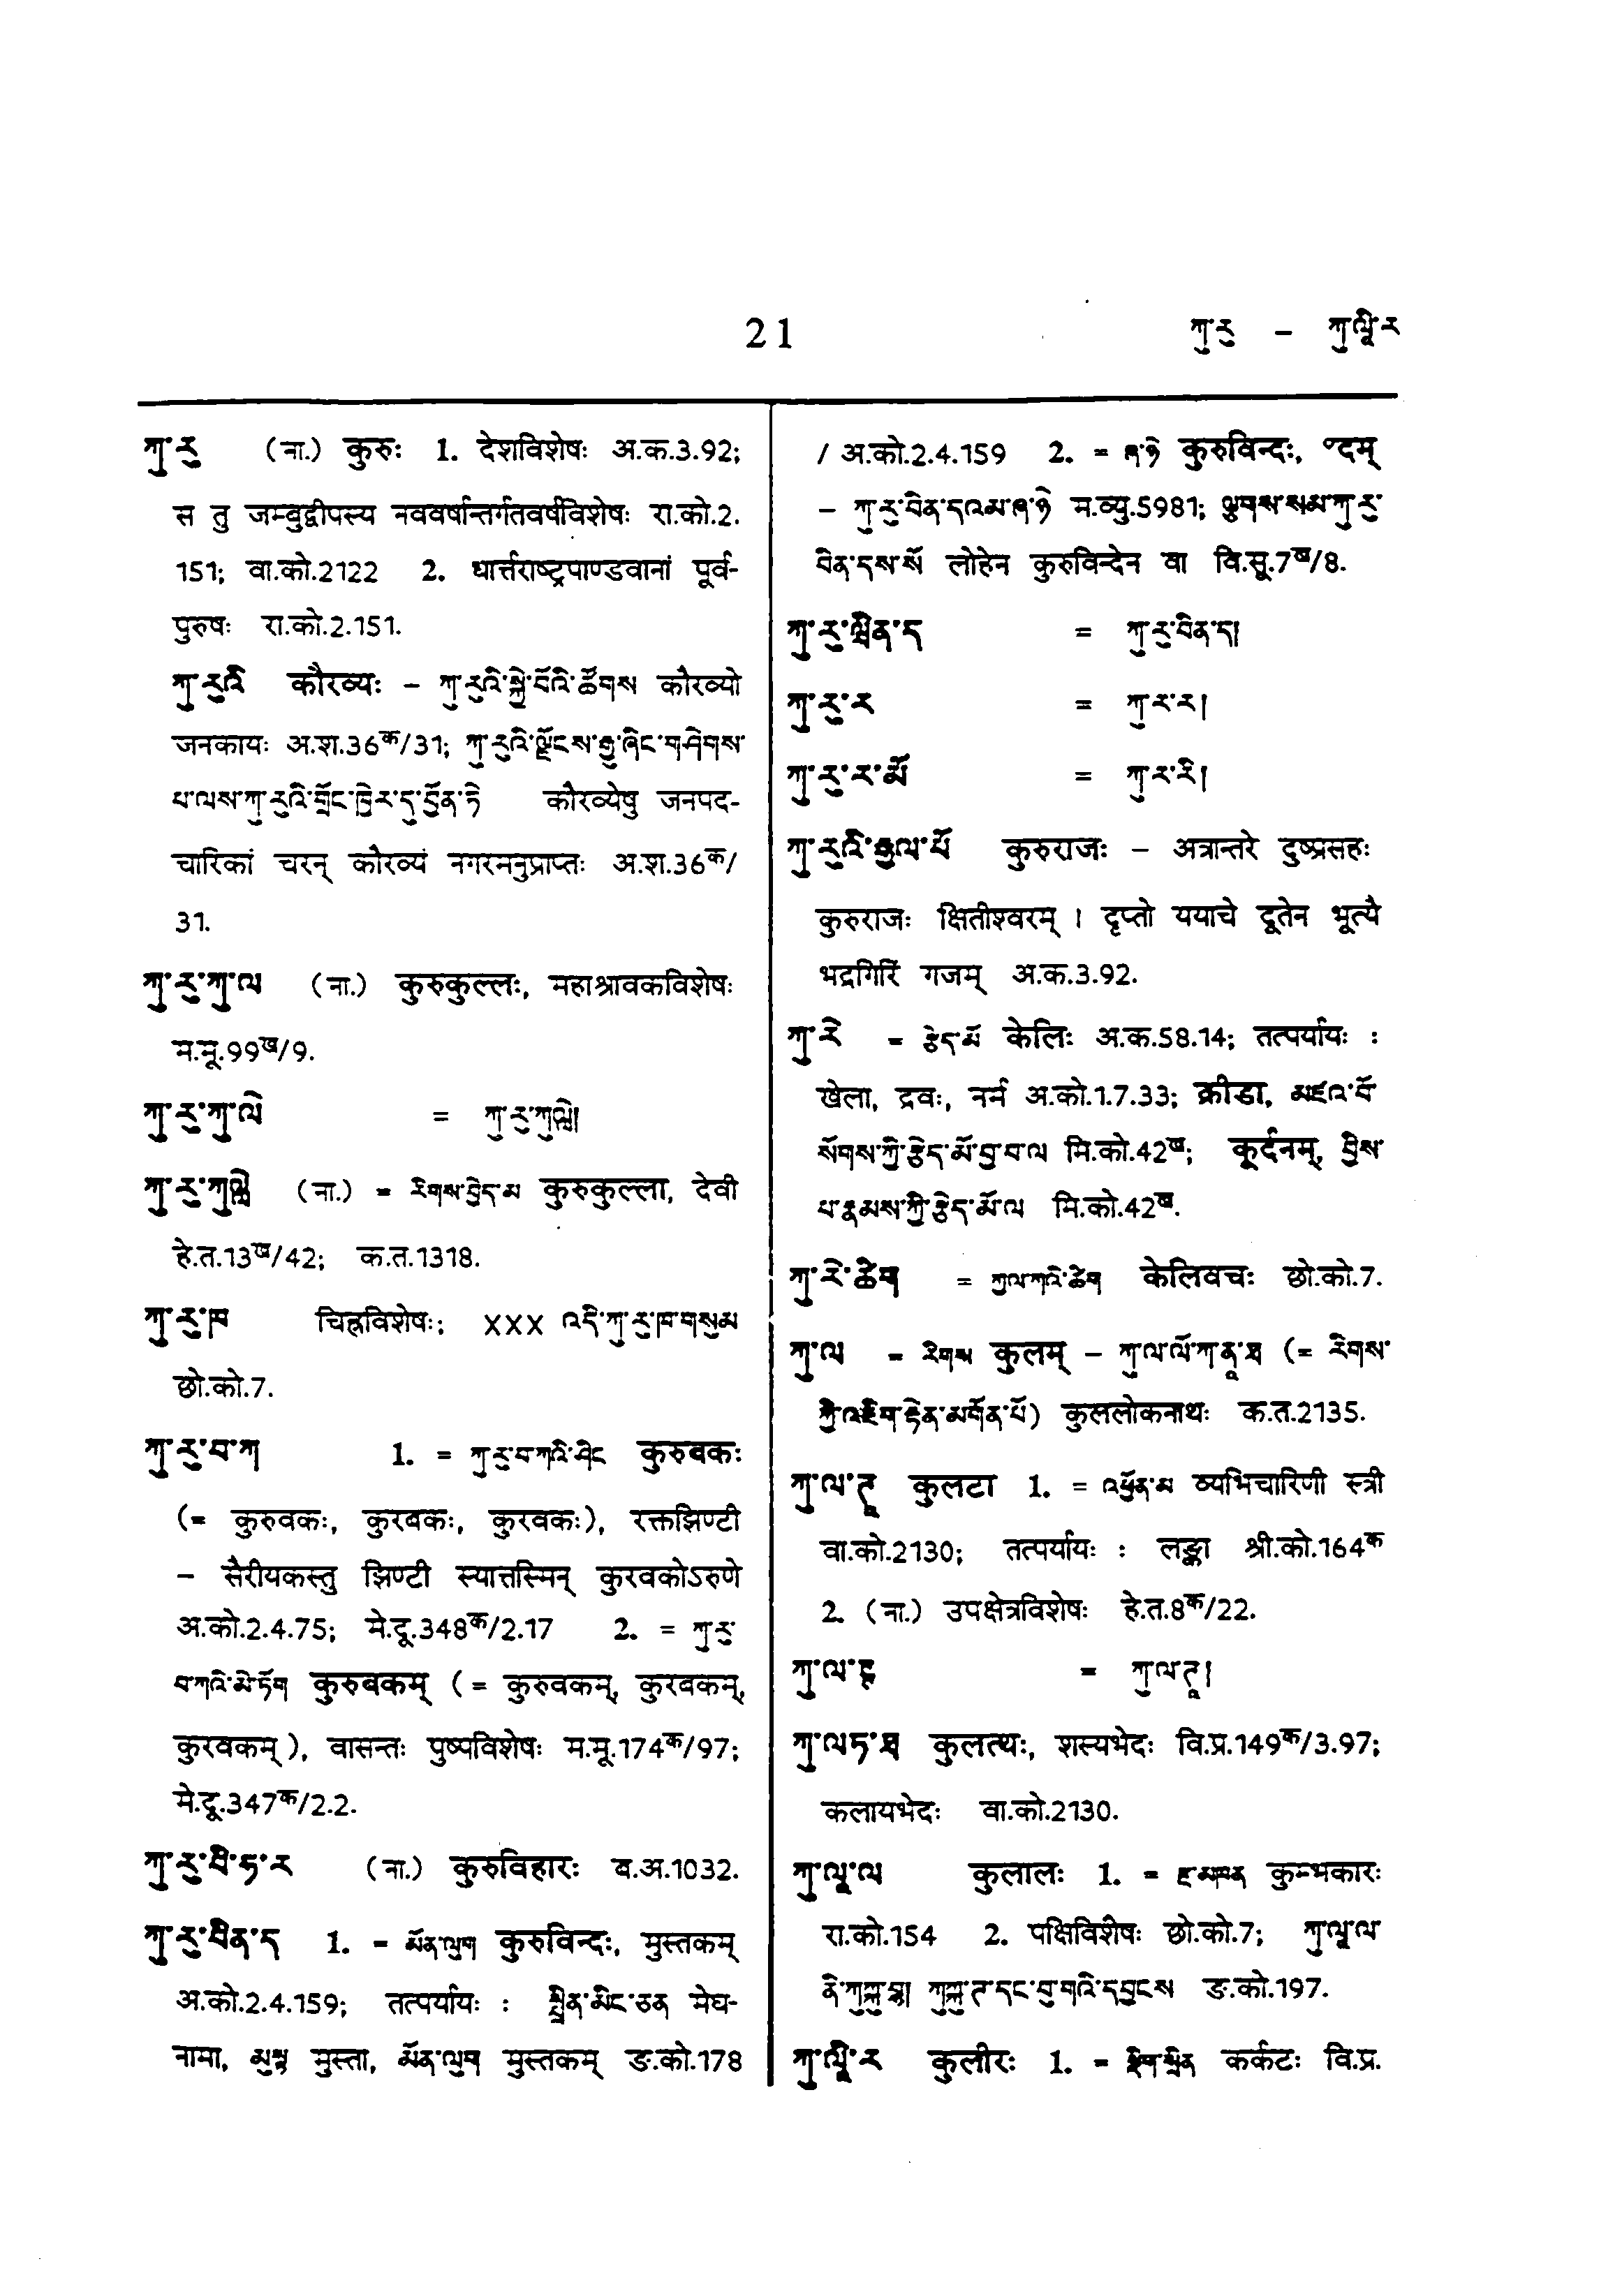 21
ཀུ་རུ – ཀུ་ལཱི་ར
ཀུ་རུ (ना.) कुरुः 1. देशविशेषः अ.क.3.92;
स तु जम्बुद्वीपस्य नववर्षान्तर्गतवर्षविशेषः रा.को.2.
151; वा.को.2122 2. धार्त्तराष्ट्रपाण्डवानां पूर्व-
पुरुषः रा.को.2.151.
ཀུ་རུའི कौरव्यः – ཀུ་རུའི་སྐྱེ་བོའི་ཚོགས कौरव्यो
जनकायः अ.श.36क/31; ཀུ་རུའི་ལྗོངས་རྒྱུ་ཞིང་གཤེགས་
པ་ལས་ཀུ་རུའི་གྲོང་ཁྱེར་དུ་བྱོན་ཏེ कौरव्येषु जनपद-
चारिकां चरन् कौरव्यं नगरमनुप्राप्तः अ.श.36क/
31.
ཀུ་རུ་ཀུ་ལ (ना.) कुरुकुल्लः, महाश्रावकविशेषः
म.मू.99ख/9.
ཀུ་རུ་ཀུ་ལེ = ཀུ་རུ་ཀུལླེ།
ཀུ་རུ་ཀུལླེ (ना.) = རིགས་བྱེད་མ कुरुकुल्ला, देवी
हे.त.13ख/42; क.त.1318.
ཀུ་རུ་ཁ चिह्नविशेषः; xxx འདི་ཀུ་རུ་ཁ་གསུམ
छो.को.7.
ཀུ་རུ་བ་ཀ 1. = ཀུ་རུ་བ་ཀའི་ཤིང कुरुबकः
(= कुरुवकः, कुरबकः, कुरवकः), रक्तझिण्टी
– सैरीयकस्तु झिण्टी स्यात्तस्मिन् कुरवकोऽरुणे
अ.को.2.4.75; मे.दू.348क/2.17 2. = ཀུ་རུ་
བ་ཀའི་མེ་ཏོག कुरुबकम् (= कुरुवकम्, कुरबकम्,
कुरवकम्), वासन्तः पुष्पविशेषः म.मू.174क/97;
मे.दू.347क/2.2.
ཀུ་རུ་བི་ཧ་ར (ना.) कुरुविहारः ब.अ.1032.
ཀུ་རུ་བིན་ད 1. = མོན་ལུག कुरुविन्दः, मुस्तकम्
अ.को.2.4.159; तत्पर्यायः : སྤྲིན་མིང་ཅན मेघ-
नामा, མུསྟ मुस्ता, མོན་ལུག मुस्तकम् ङ.को.178
/ अ.को.2.4.159 2. = कुरुविन्दः, °दम्
– ཀུ་རུ་བིན་དའམ་ म.व्यु.5981; ལྕགས་སམ་ཀུ་རུ་
བིན་དས་སོ लोहेन कुरुविन्देन वा वि.सू.7ख/8.
= ཀུ་རུ་བིན་ད།
ཀུ་རུ་ར = ཀུ་ར་ར།
ཀུ་རུ་ར་མོ = ཀུ་ར་རི།
ཀུ་རུའི་རྒྱལ་པོ कुरुराजः – अत्रान्तरे दुष्प्रसहः
कुरुराजः क्षितीश्वरम् । दृप्तो ययाचे दूतेन भूत्यै
भद्रगिरिं गजम् अ.क.3.92.
ཀུ་རེ = རྩེད་མོ केलिः अ.क.58.14; तत्पर्यायः :
खेला, द्रवः, नर्म अ.को.1.7.33; क्रीडा, མཛའ་བོ་
སོགས་ཀྱི་རྩེད་མོ་བྱ་བ་ལ मि.को.42ख; कूर्दनम्, བྱིས་
པ་རྣམས་ཀྱི་རྩེད་མོ་ལ मि.को.42ख.
ཀུ་རེ་ཚིག = ཀུ་ལ་ཀའི་ཚིག केलिवचः छो.को.7.
ཀུ་ལ = རིགས कुलम् – ཀུ་ལ་ལོ་ཀ་ནཱ་ཐ (= རིགས་
ཀྱི་འཇིག་རྟེན་མགོན་པོ) कुललोकनाथः क.त.2135.
ཀུ་ལ་ཊཱ कुलटा 1. = འཕྱོན་མ व्यभिचारिणी स्त्री
वा.को.2130; तत्पर्यायः : लङ्का श्री.को.164क
2. (ना.) उपक्षेत्रविशेषः हे.त.8क/22.
= ཀུ་ལ་ཊཱ།
ཀུ་ལཏ་ཐ कुलत्थः, शस्यभेदः वि.प्र.149क/3.97;
कलायभेदः वा.को.2130.
ཀུ་ལཱ་ལ कुलालः 1. = རྫ་མཁན कुम्भकारः
रा.को.154 2. पक्षिविशेषः छो.को.7; ཀུ་ལཱ་ལ་
དང་བྱ་གའི་དབྱངས ङ.को.197.
ཀུ་ལཱི་ར कुलीरः 1. = སྡིག་སྲིན कर्कटः वि.प्र.